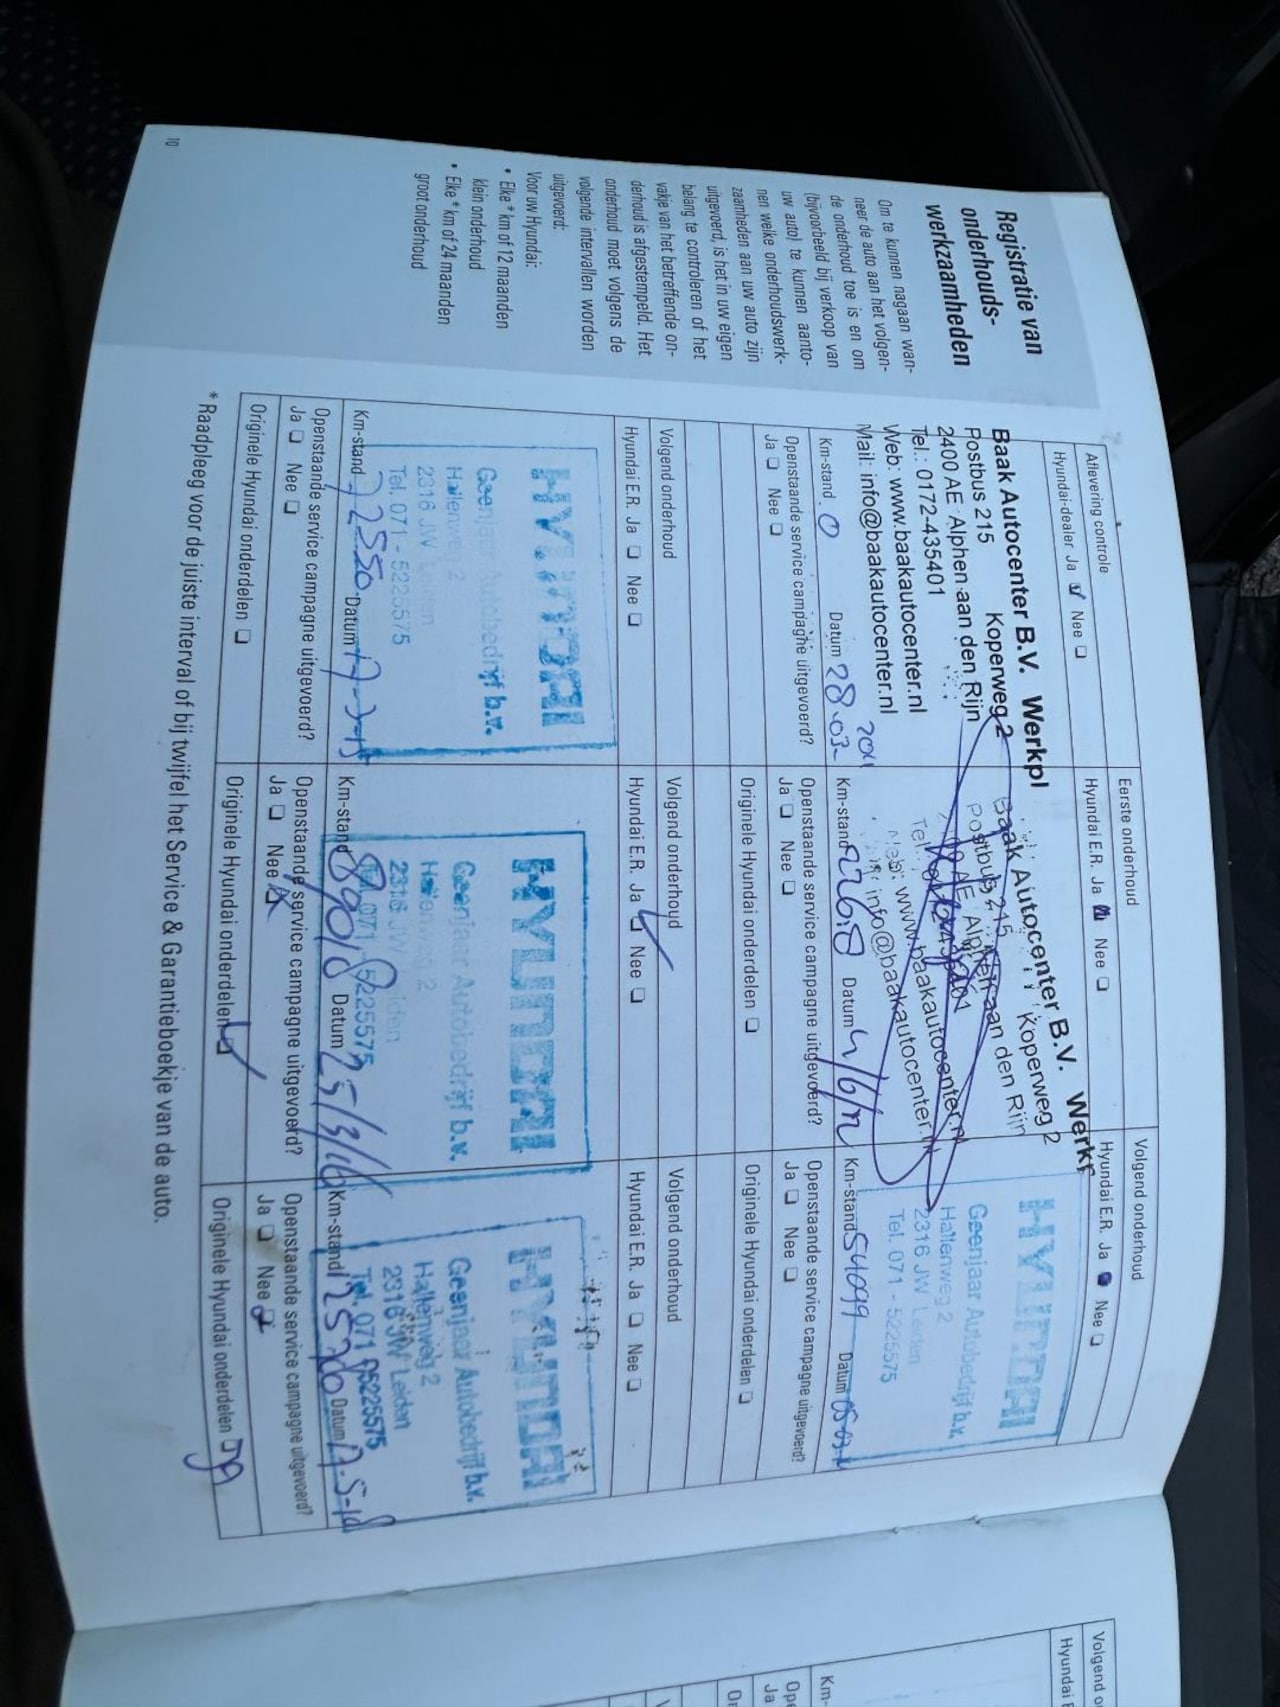 Registratie van
onderhouds-
werkzaamheden
Om te kunnen nagaan wan-
neer de auto aan het volgen-
de onderhoud toe is en om
(bijvoorbeeld bij verkoop van
uw auto) te kunnen aanto-
nen welke onderhoudswerk-
zaamheden aan uw auto zijn
uitgevoerd, is het in uw eigen
belang te controleren of het
vakje van het betreffende on-
derhoud is afgestempeld. Het
onderhoud moet volgens de
volgende intervallen worden
uitgevoerd:
Voor uw Hyundai:
• Elke * km of 12 maanden
klein onderhoud
• Elke * km of 24 maanden
groot onderhoud
10
Aflevering controle
Hyundai-dealer Ja Nee
Baak Autocenter B.V. Werkpl
Postbus 215 Koperweg 2
2400 AE Alphen aan den Rijn
Tel.: 0172-435401
Web: www.baakautocenter.nl
Mail: info@baakautocenter.nl
Km-stand 0 Datum 28-03-2011
Openstaande service campagne uitgevoerd?
Ja Nee
Eerste onderhoud
Hyundai E.R. Ja Nee
Baak Autocenter B.V. Werkp
Postbus 215 Koperweg 2
AE Alphen aan den Rijn
Tel
Web: www.baakautocenter.nl
info@baakautocenter.nl
Km-stand 22618 Datum
Openstaande service campagne uitgevoerd?
Ja Nee
Originele Hyundai onderdelen
Volgend onderhoud
Hyundai E.R. Ja Nee
HYUNDAI
Geenjaar Autobedrijf b.v.
Hallenweg 2
2316 JW Leiden
Tel. 071 - 5225575
Km-stand 54099 Datum 05-03-
Openstaande service campagne uitgevoerd?
Ja Nee
Originele Hyundai onderdelen
Volgend onderhoud
Hyundai E.R. Ja Nee
HYUNDAI
Geenjaar Autobedrijf b.v.
Hallenweg 2
2316 JW Leiden
Tel. 071 - 5225575
Km-stand 72550 Datum 17-3-15
Openstaande service campagne uitgevoerd?
Ja Nee
Originele Hyundai onderdelen
Volgend onderhoud
Hyundai E.R. Ja Nee
HYUNDAI
Geenjaar Autobedrijf b.v.
Hallenweg 2
2316 JW Leiden
Tel. 071 - 5225575
Km-stand 89010 Datum 25/3/16
Openstaande service campagne uitgevoerd?
Ja Nee
Originele Hyundai onderdelen
Volgend onderhoud
Hyundai E.R. Ja Nee
HYUNDAI
Geenjaar Autobedrijf b.v.
Hallenweg 2
2316 JW Leiden
Tel. 071 5225575
Km-stand Datum 17-5-18
Openstaande service campagne uitgevoerd?
Ja Nee
Originele Hyundai onderdelen
* Raadpleeg voor de juiste interval of bij twijfel het Service & Garantieboekje van de auto.
Volgend
Hyundai
Km-
Ope
Ja